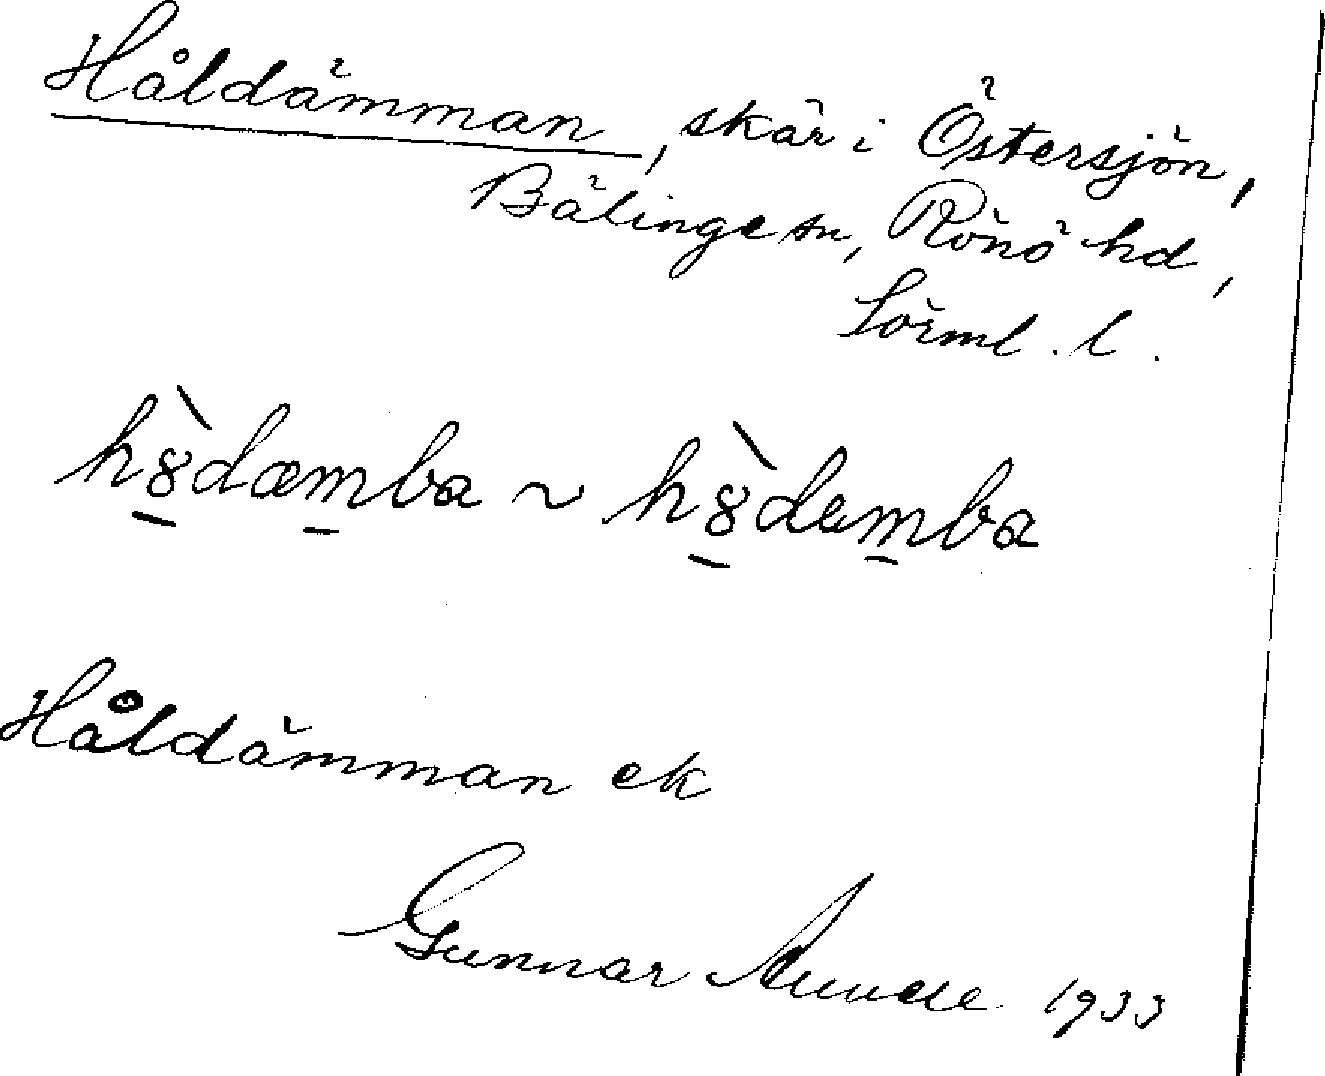 Håldämman, skär i Östersjön,
Bälinge sn, Rönö hd,
Sörml. l.
hȣ̠̀dæm̠ba ~ hȣ̠̀dem̠ba
Håldämman ek
Gunnar 1933